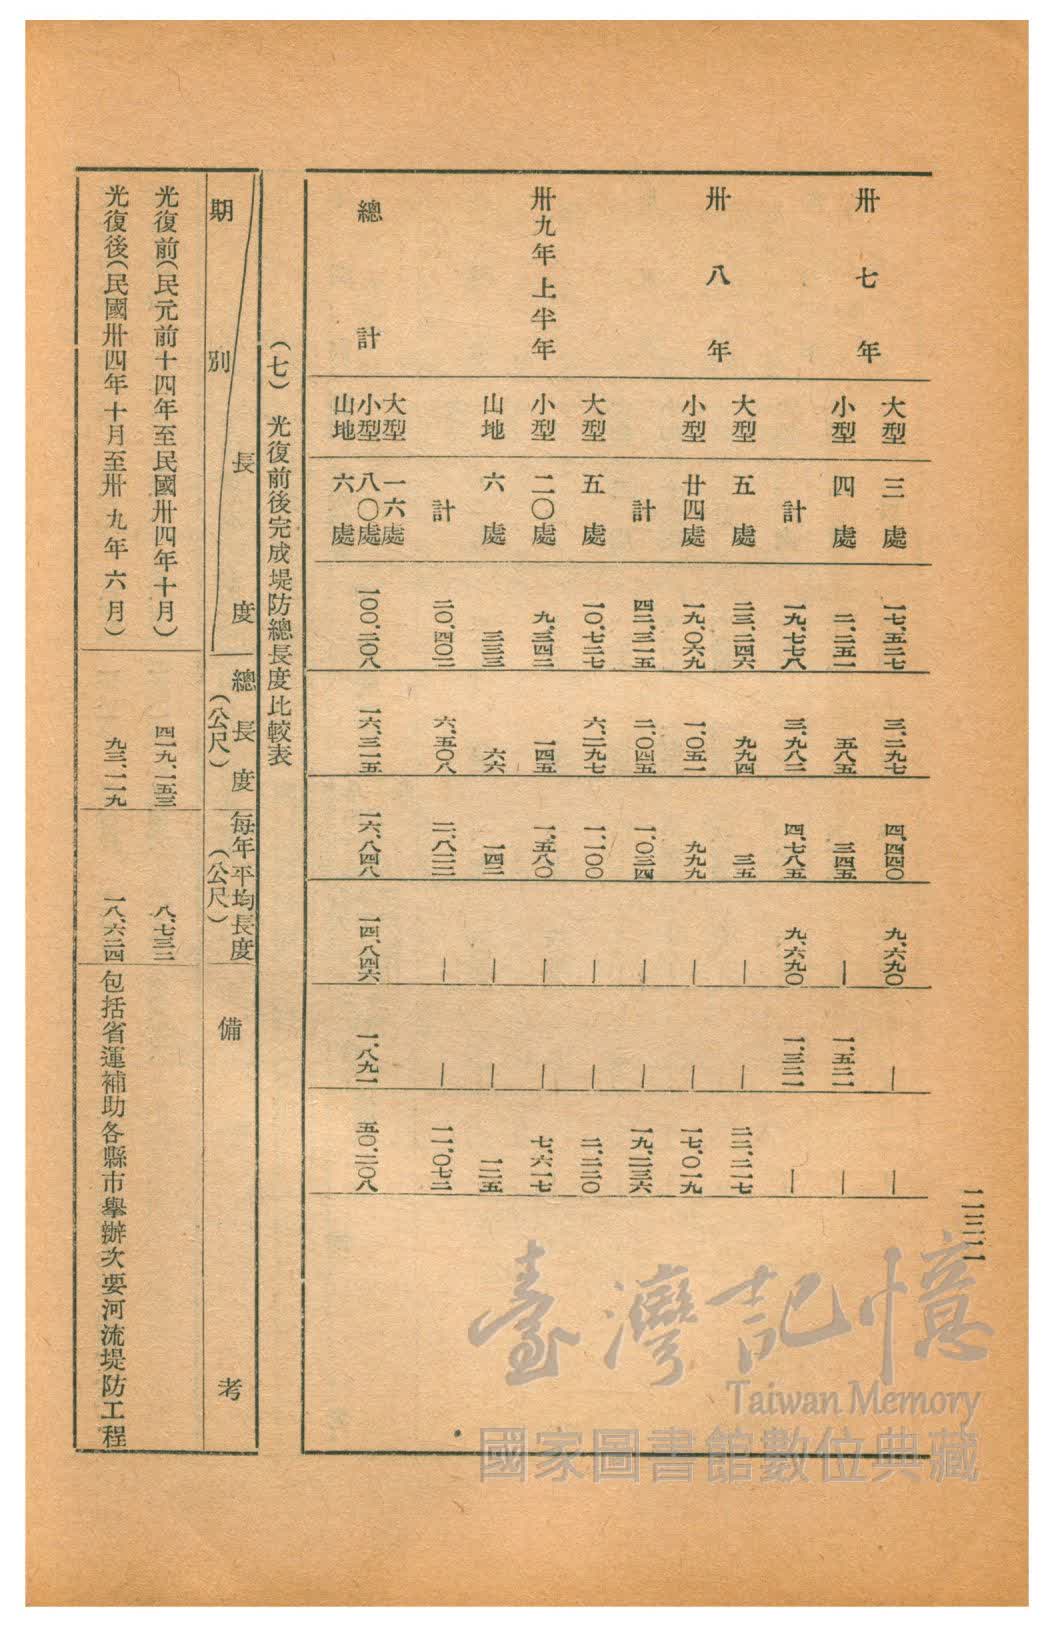 二三二
卅七年 大型 三處 一七、五二七 三、二九七 四、四四〇 九、六九〇 — —
小型 四處 二、二五一 五八五 三四五 — 一、五二一 —
計 一九、七七八 三、九八二 四、七八五 九、六九〇 一、三二一 —
卅八年 大型 五處 二三、二四六 九九四 三五 — — 二二、二一七
小型 廿四處 一九、〇六九 一、〇五一 九九九 — — 一七、〇一九
計 四二、三一五 二、〇四五 一、〇三四 — — 一九、二三六
卅九年上半年 大型 五處 一〇、七二七 六、二九七 一、一〇〇 — — 二、二二〇
小型 二〇處 九、三四二 一四五 一、五八〇 — — 七、六一七
山地 六處 三三三 六六 一四二 — — 一二五
計 二〇、四〇二 六、五〇八 二、八二二 — — 一一、〇七二
總計 大型 一六處
小型 八〇處
山地 六處
一〇〇、二〇八 一六、三一五 一六、八四八 一四、八四六 一、八九一 五〇、二〇八
(七) 光復前後完成堤防總長度比較表
長度 總長度 每年平均長度
期別 (公尺) (公尺) 備考
光復前(民元前十四年至民國卅四年十月) 四一九、一五三 八、七三二
光復後(民國卅四年十月至卅九年六月) 九三、一一九 一八、六二四 包括省運補助各縣市舉辦次要河流堤防工程
臺灣記憶
Taiwan Memory
國家圖書館數位典藏